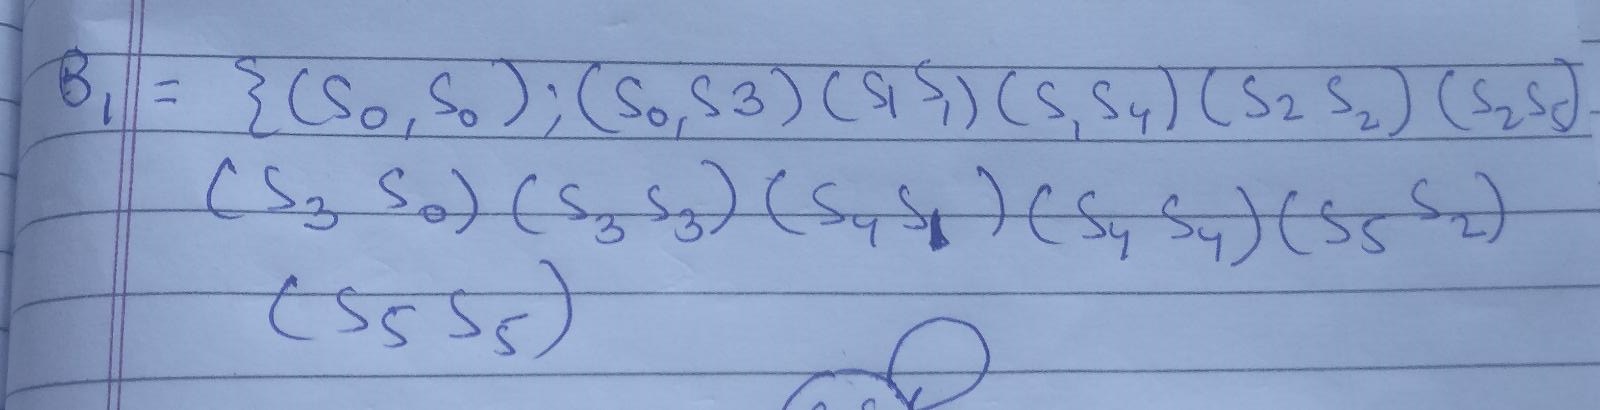 B₁ = {(S₀, S₀); (S₀, S3) (S₁ S₁) (S₁ S₄) (S₂ S₂) (S₂ S₅)
(S₃ S₀) (S₃ S₃) (S₄ S₁) (S₄ S₄) (S₅ S₂)
(S₅ S₅)